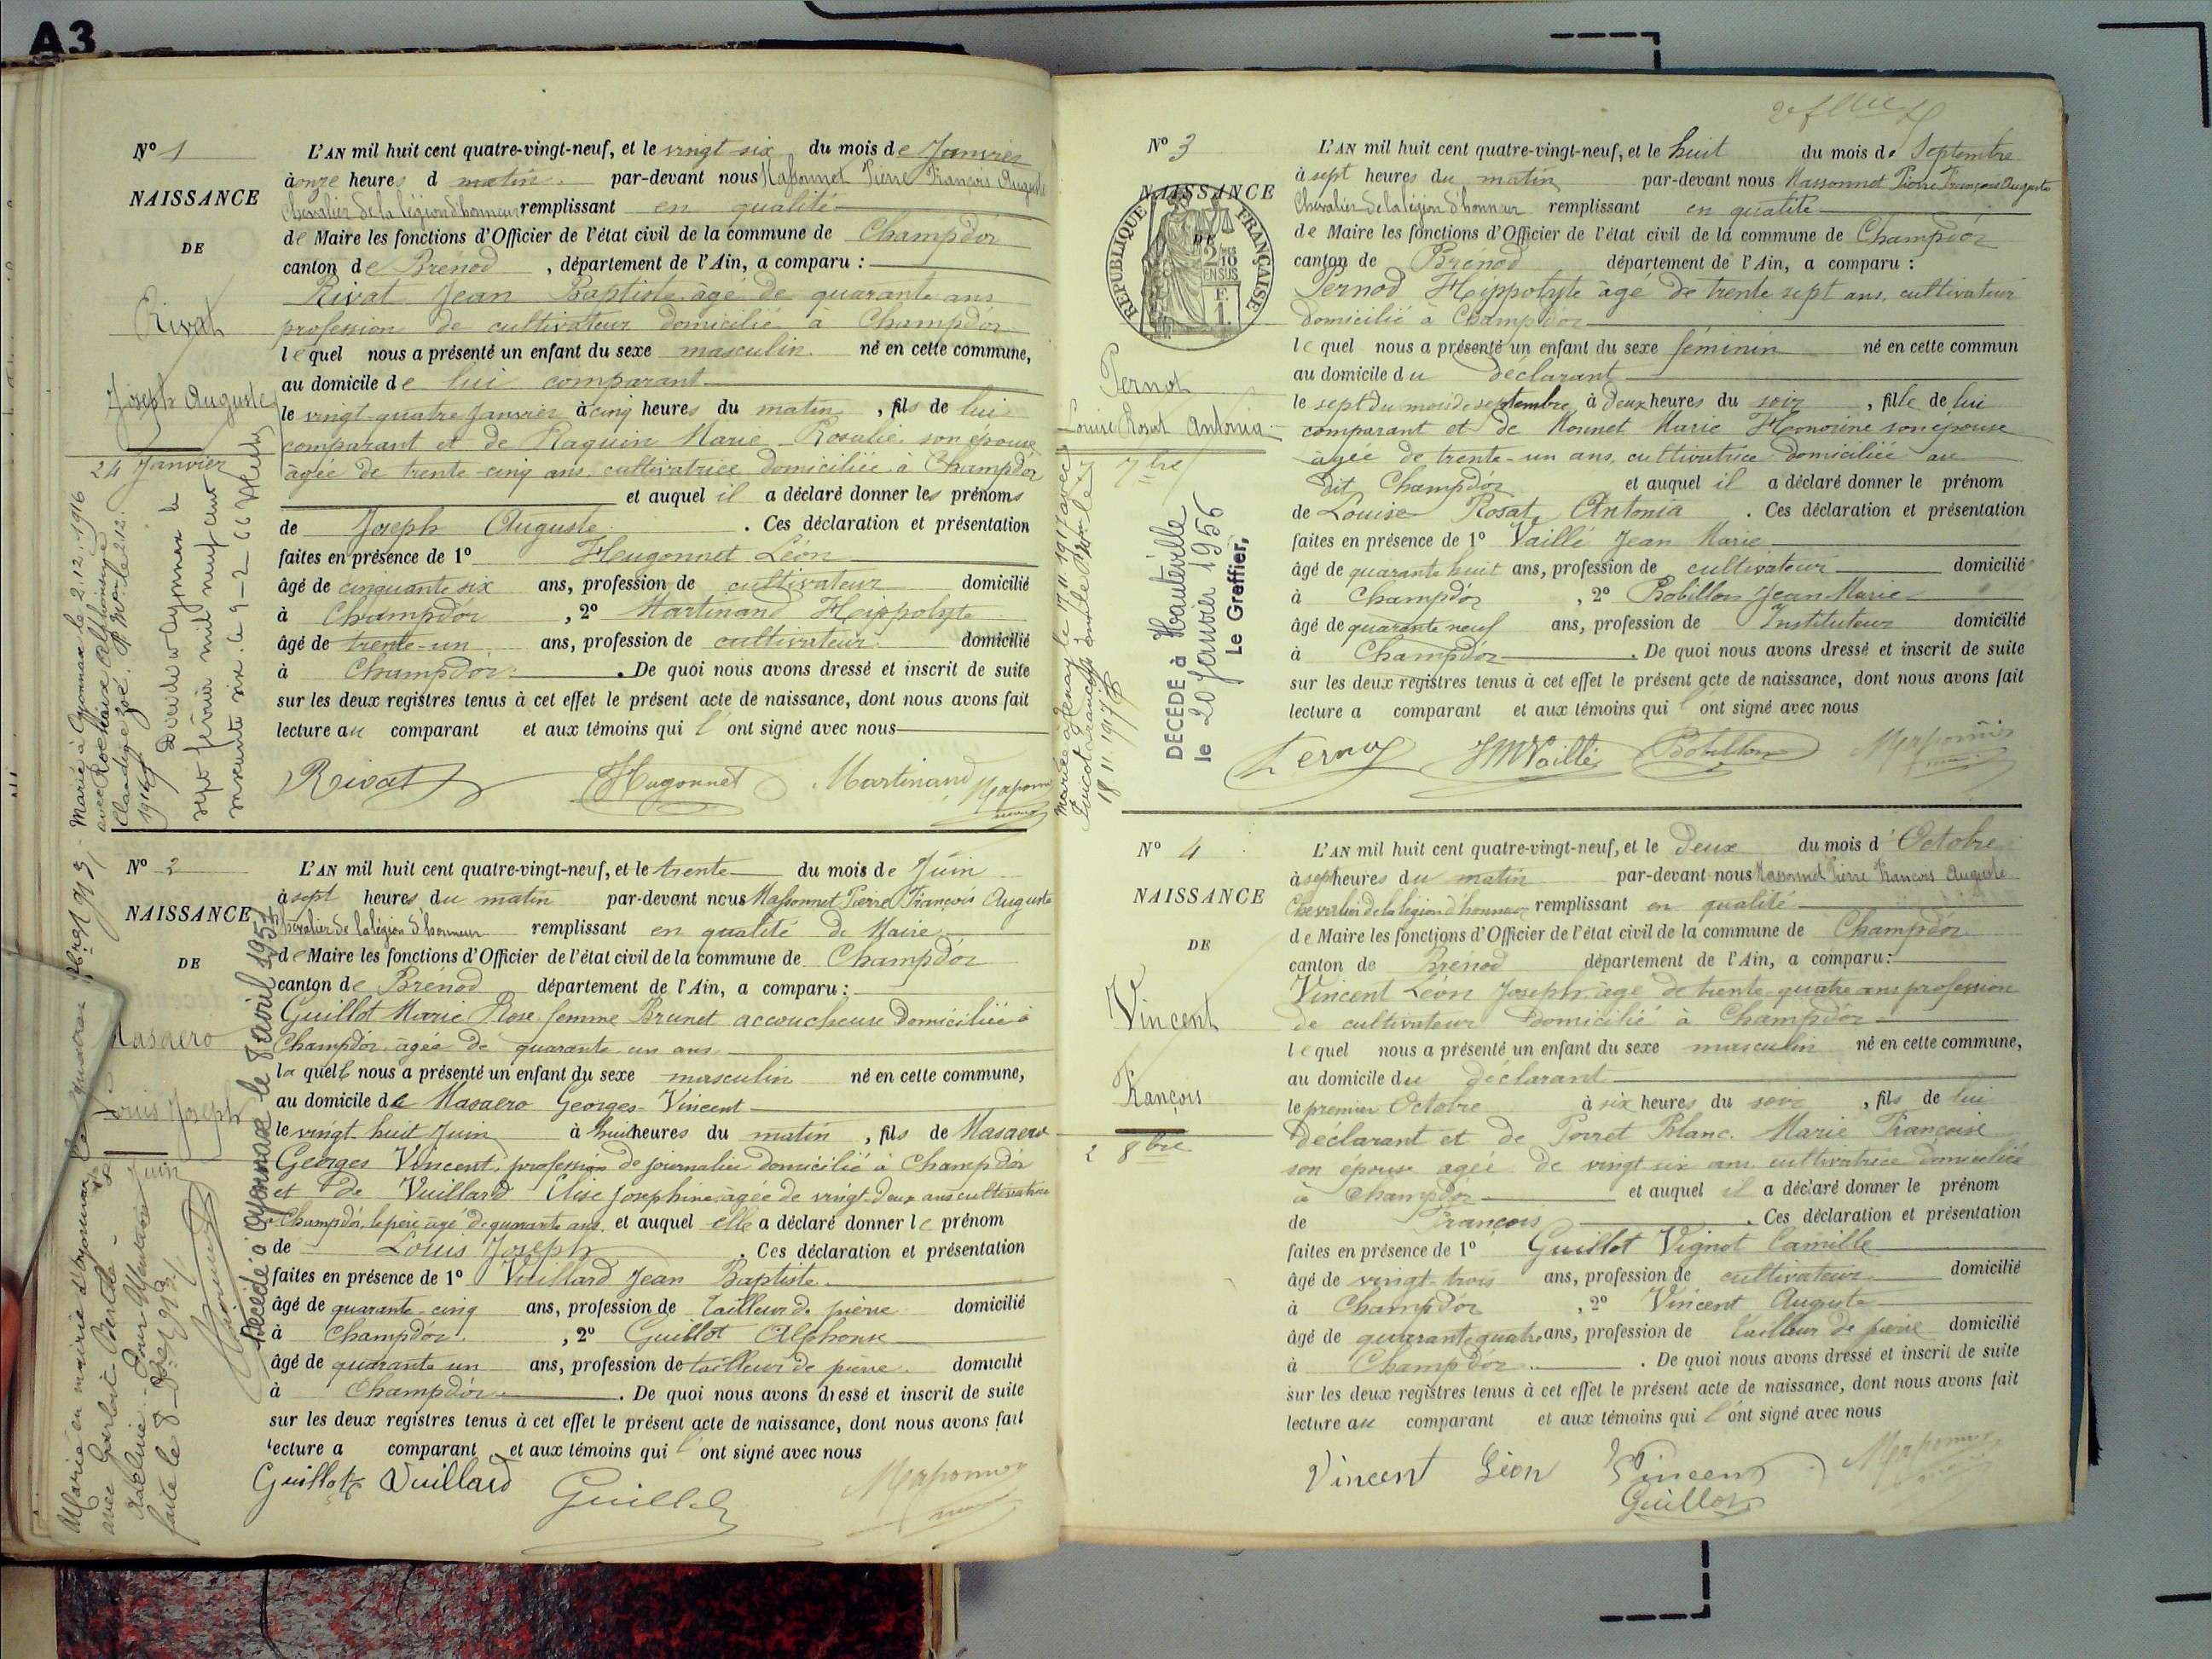 A3
Nº 1
NAISSANCE
DE
Rivat
Joseph Auguste
24 Janvier
L'AN mil huit cent quatre-vingt-neuf, et le vingt six du mois de Janvier
à onze heures d matin par-devant nous Massonnet Pierre François Auguste
Chevalier de la légion d'honneur remplissant en qualité
de Maire les fonctions d'Officier de l'état civil de la commune de Champdor
canton de Brénod, département de l'Ain, a comparu :
Rivat Jean Baptiste âgé de quarante ans
profession de cultivateur domicilié à Champdor
lequel nous a présenté un enfant du sexe masculin né en cette commune,
au domicile de lui comparant
le vingt-quatre Janvier à cinq heures du matin, fils de lui
comparant et de Raquin Marie Rosalie son épouse
âgée de trente-cinq ans cultivatrice domiciliée à Champdor
et auquel il a déclaré donner les prénoms
de Joseph Auguste. Ces déclaration et présentation
faites en présence de 1º Hugonnet Léon
âgé de cinquante six ans, profession de cultivateur domicilié
à Champdor, 2º Martinand Hippolyte
âgé de trente-un ans, profession de cultivateur domicilié
à Champdor. De quoi nous avons dressé et inscrit de suite
sur les deux registres tenus à cet effet le présent acte de naissance, dont nous avons fait
lecture au comparant et aux témoins qui l'ont signé avec nous
Rivat Hugonnet Martinand
Marié à Oyonnax le 2.12.1916
Décédé à Oyonnax le
sept février mil neuf cent
soixante six. le 9-2-66
Nº 2
NAISSANCE
DE
Masaero
Louis Joseph
Juin
L'AN mil huit cent quatre-vingt-neuf, et le trente du mois de Juin
à sept heures du matin par-devant nous Massonnet Pierre François Auguste
Chevalier de la légion d'honneur remplissant en qualité de Maire
de Maire les fonctions d'Officier de l'état civil de la commune de Champdor
canton de Brénod département de l'Ain, a comparu :
Guillot Marie Rose femme Brunet accoucheuse domiciliée à
Champdor âgée de quarante un ans
la quelle nous a présenté un enfant du sexe masculin né en cette commune,
au domicile de Masaero Georges Vincent
le vingt huit Juin à huit heures du matin, fils de Masaero
Georges Vincent, profession de journalier domicilié à Champdor
et de Vuillard Elise Josephine âgée de vingt-deux ans cultivatrice
Champdor, le père âgé de quarante ans et auquel elle a déclaré donner le prénom
de Louis Joseph. Ces déclaration et présentation
faites en présence de 1º Vuillard Jean Baptiste
âgé de quarante-cinq ans, profession de tailleur de pierre domicilié
à Champdor, 2º Guillot Alphonse
âgé de quarante un ans, profession de tailleur de pierre domicilié
à Champdor. De quoi nous avons dressé et inscrit de suite
sur les deux registres tenus à cet effet le présent acte de naissance, dont nous avons fait
lecture a comparant et aux témoins qui l'ont signé avec nous
Guillot Vuillard Guillot
Décédé à Oyonnax le 8 avril 1953
Marié en mairie d'Oyonnax
Nº 3
NAISSANCE
DE
RÉPUBLIQUE FRANÇAISE
Pernod
Louise Rosat Antonia
7bre
L'AN mil huit cent quatre-vingt-neuf, et le huit du mois de Septembre
à sept heures du matin par-devant nous Massonnet Pierre François Auguste
Chevalier de la légion d'honneur remplissant en qualité
de Maire les fonctions d'Officier de l'état civil de la commune de Champdor
canton de Brénod département de l'Ain, a comparu :
Pernod Hippolyte âgé de trente sept ans, cultivateur
domicilié à Champdor
lequel nous a présenté un enfant du sexe féminin né en cette commun
au domicile du déclarant
le sept du mois de septembre à deux heures du soir, fille de lui
comparant et de Monnet Marie Honorine son épouse
âgée de trente-un ans, cultivatrice domiciliée au
dit Champdor et auquel il a déclaré donner le prénom
de Louise Rosat Antonia. Ces déclaration et présentation
faites en présence de 1º Vaillé Jean Marie
âgé de quarante huit ans, profession de cultivateur domicilié
à Champdor, 2º Bobillon Jean Marie
âgé de quarante neuf ans, profession de Instituteur domicilié
à Champdor. De quoi nous avons dressé et inscrit de suite
sur les deux registres tenus à cet effet le présent acte de naissance, dont nous avons fait
lecture a comparant et aux témoins qui l'ont signé avec nous
Pernod JM Vaillé Bobillon
DÉCÉDÉ à Hauteville
le 20 Janvier 1956
Le Greffier,
Nº 4
NAISSANCE
DE
Vincent
François
2 8bre
L'AN mil huit cent quatre-vingt-neuf, et le Deux du mois d'Octobre
à sept heures du matin par-devant nous Massonnet Pierre François Auguste
Chevalier de la légion d'honneur remplissant en qualité
de Maire les fonctions d'Officier de l'état civil de la commune de Champdor
canton de Brénod département de l'Ain, a comparu :
Vincent Léon Joseph âgé de trente-quatre ans profession
de cultivateur domicilié à Champdor
lequel nous a présenté un enfant du sexe masculin né en cette commune,
au domicile du déclarant
le premier Octobre à six heures du soir, fils de lui
déclarant et de Porret Blanc Marie Françoise
son épouse âgée de vingt six ans cultivatrice domiciliée
à Champdor et auquel il a déclaré donner le prénom
de François. Ces déclaration et présentation
faites en présence de 1º Guillot Vignot Camille
âgé de vingt-trois ans, profession de cultivateur domicilié
à Champdor, 2º Vincent Auguste
âgé de quarante quatre ans, profession de tailleur de pierre domicilié
à Champdor. De quoi nous avons dressé et inscrit de suite
sur les deux registres tenus à cet effet le présent acte de naissance, dont nous avons fait
lecture au comparant et aux témoins qui l'ont signé avec nous
Vincent Léon Vincent
Guillot